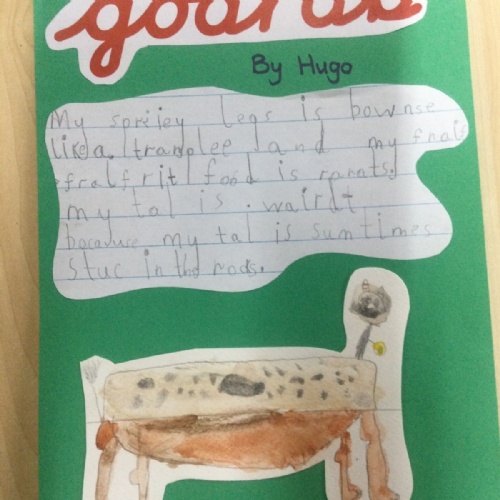 By Hugo
My spriiey legs is bownse
like a tradplee and my
fralfrit food is carats.
my tal is wairdt
bacause my tal is sumtimes
stuc in the rods.